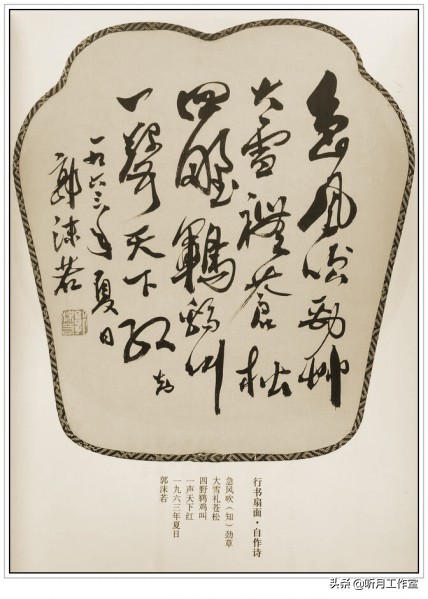 急風吹勁艸
大雪禮蒼松
四野鶤鷄叫
一聲天下紅 知
一九六三年夏日
郭沫若
行书扇面·自作诗
急风吹（知）劲草
大雪礼苍松
四野鹍鸡叫
一声天下红
一九六三年夏日
郭沫若
头条 @听月工作室